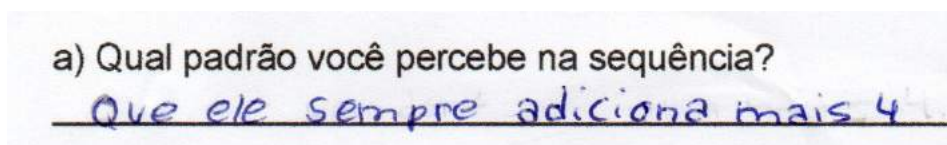 a) Qual padrão você percebe na sequência?
Que ele sempre adiciona mais 4